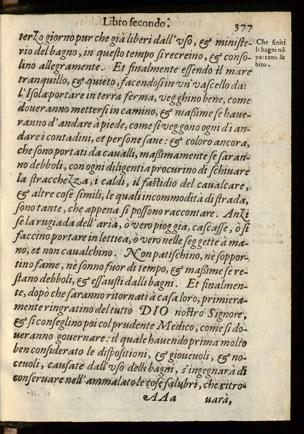 Libro secondo.
377
terzo giorno pur che già liberi dall'vso, & ministe-
rio del bagno, in questo tempo si recreino, & conso-
lino allegramente. Et finalmente essendo il mare
tranquillo, & quieto, facendosi in vn vascello dal
l'Isola portare in terra ferma, vegghino bene, come
doueranno mettersi in camino, & maßime se haue-
ranno d'andare à piede, come si veggono ogni dì an-
dare i contadini, et persone sane: & coloro ancora,
che sono portati da caualli, maßimamente se saran-
no debboli, con ogni diligentia procurino di schiuare
la stracchezza, i caldi, il fastidio del caualcare,
& altre cose simili, le quali incommodità di strada,
sono tante, che appena si possono raccontare. Anzi
se la rugiada dell'aria, ò vero pioggia, cascasse, ò si
faccino portare in lettica, ò vero nelle seggette à ma-
no, et non caualchino. Non patischino, nè soppor-
tino fame, nè sonno fior di tempo, & maßime se re-
stano debboli, & essausti dalli bagni. Et finalmen-
te, dopò che saranno ritornati à casa loro, primiera-
mente ringratino del tutto DIO nostro Signore,
& si conseglino poi col prudente Medico, come si do-
ueranno gouernare: il quale hauendo prima molto
ben considerato le dispositioni, & gioueuoli, & no-
ceuoli, causate dall'vso delli bagni, s'ingegnarà di
conseruare nell'ammalato le cose salubri, che ritro-
AAa
uarà,
Che finiti
li bagni nõ
partano su
bito.